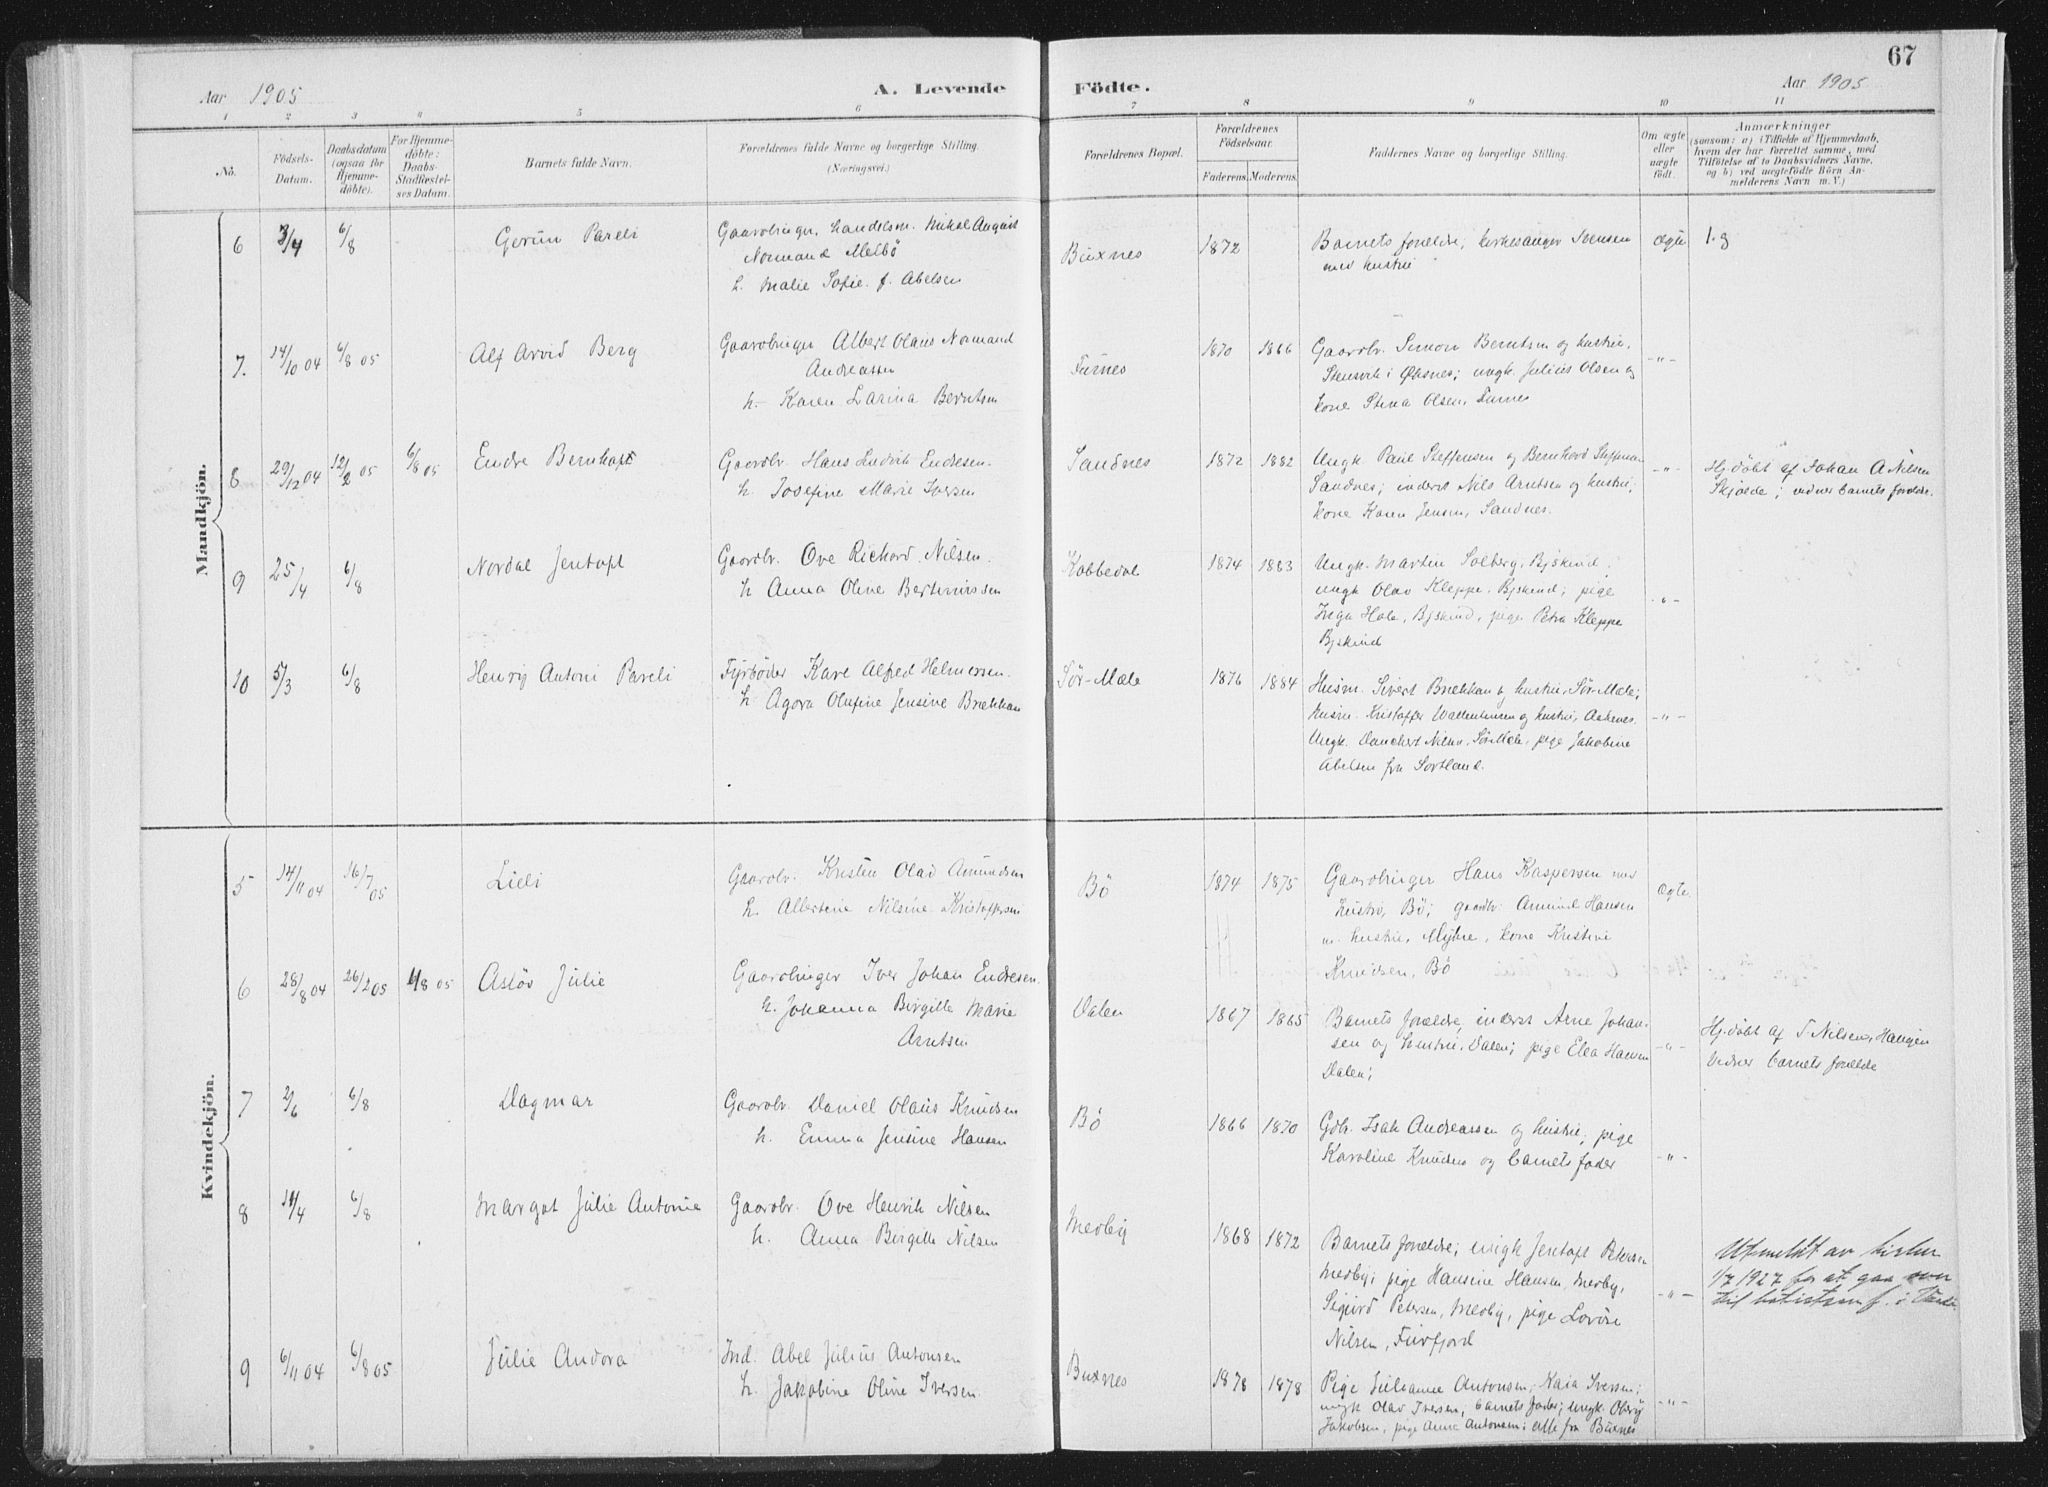 67
Aar 1905
A. Levende
Födte.
Aar 1905
1 2 3 4 5 6 7 8 9 10 11
No.
Födsels-
Datum.
Daabsdatum
(ogsaa for
Hjemme-
döbte).
For Hjemme-
döbte:
Daabs-
Stadfæstel-
ses Datum.
Barnets fulde Navn.
Forældrenes fulde Navne og borgerlige Stilling.
(Næringsvei.)
Forældrenes Bopæl.
Forældrenes
Födselsaar.
Faderens. Moderens.
Faddernes Navne og borgerlige Stilling.
Om ægte
eller
uægte
födt.
Anmærkninger
(saasom: a) i Tilfælde af Hjemmedaab,
hvem der har forrettet samme, med
Tilföielse af to Daabsvidners Navne,
og b) ved uægtefödte Börn An-
melderens Navn m. V.)
Mandkjön.
6 3/4 6/8 Gerun Pareli
Gaardbruger, handelsm. Mikal August
Normand Melbö
h. Malie Sofie f. Abelsen
Buxnes 1872
Barnets forældre, kirkesanger Svensen
med hustru
ægte 1.g
7. 14/10 04 6/8 05 Alf Arvid Berg
Gaardbruger Albert Olaus Normand
Andreassen
h. Karen Larina Berntsen
Furnes 1870 1866
Gaardbr. Simon Berntsen og hustru,
Stensvik i Øksnes; ungk. Julius Olsen og
kone Stina Olsen, Furnes
-"-
8 29/12 04 12/2 05 6/8 05 Endre Bernhoft
Gaardbr. Hans Hedvik Endresen
h. Josefine Marie Iversen
Sandnes 1872 1882
Ungk. Paul Steffensen og Bernhard Steffensen
Sandnes; inderst Nils Arntsen og hustru,
kone Karen Jensen, Sandnes.
-"-
Hj.döbt af Johan A Nilsen
Skjolde; vidner barnets forældre.
9 25/4 6/8 Nordal Jentoft
Gaardbr. Ove Richard Nilsen
h. Anna Oline Bertinussen
Kobbedal 1874 1883
Ungk. Martin Solberg, Bjskind
ungk. Olav Kleppe, Bjskind; pige
Inga Hole, Bjskind, pige Petra Kleppe
Bjskind
-"-
10 5/3 6/8 Henry Antoni Pareli
Fyrböder Karl Alfred Helmersen
h. Agora Olufine Jensine Brækkan
Sør-Mæle 1876 1884
Husm. Sivert Brækkan og hustru, Sør-Mæle;
husm. Kristoffer og hustru,
Ungk. Danchert Nilsen, Sør-Mæle, pige Jakobine
Abelsen fra Sortland.
-"-
Kvindekjön.
5 14/11 04 16/7 05 Lilli
Gaardbr. Kristen Olai Amundsen
h. Albertine Nilsine Kristoffersen
Bö 1874 1875
Gaardbruger Hans Kaspersen med
hustru, Bö; gaardbr. Amund Hansen
m. hustru, Myhre, kone Kristine
Knudsen, Bö
ægte
6 28/8 04 26/2 05 6/8 05 Aslöv Julie
Gaardbruger Iver Johan Endresen
h. Johanna Birgitte Marie
Arntsen
Dalen 1867 1865
Barnets forældre, inderst Arne Johan-
sen og hustru, Dalen; pige Elea Hansen
Dalen;
-"-
Hj.döbt af T Nilsen, Haugen
Vidner barnets forældre
7 2/6 6/8 Dagmar
Gaardbr. Daniel Olaus Knudsen
h. Emma Jensine Hansen
Bö 1866 1870
Gdb. Isak Andreassen og hustru, pige
Karoline Knudsen og barnets fader
-"-
8 11/4 6/8 Margot Julie Antonie
Gaardbr. Ove Henrik Nilsen
h. Anna Birgitte Nilsen
Medby 1868 1872
Barnets forældre; ungk Jentoft Petersen
Medby; pige Hansine Hansen, Medby,
Sigurd Petersen, Medby, pige Lovise
Nilsen, Fuirfjord
-"-
Utmeldt av kirken
1/7 1927 for at gaa over
til batistsam f. i
9 6/11 04 6/8 05 Julie Andora
Ind. Abel Julius Antonsen
h. Jakobine Oline Iversen
Buxnes 1878 1878
Pige Julianne Antonsen, Kaia Iversen;
ungk Olav Iversen, barnets fader; ungk.
Jakobsen, pige Anne Antonsen: alle fra Buxnes
-"-